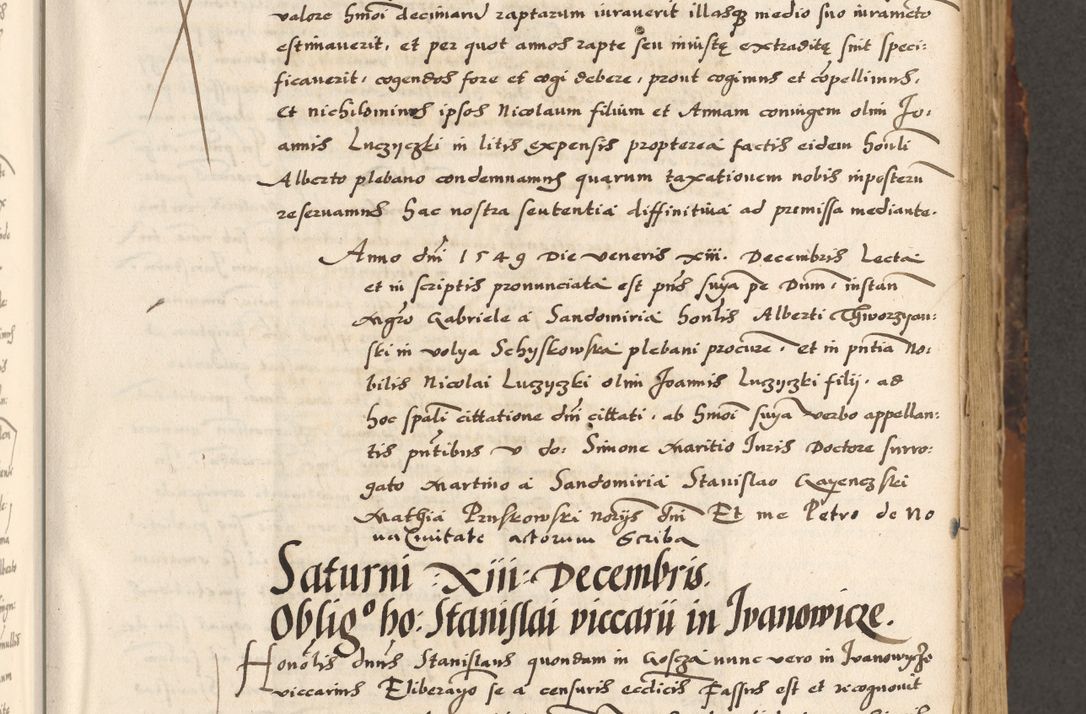 valore hmoi decimarum raptarum iuraverit illasq medio suo iuramēto
estimaverit, et per quot annos rapte seu iniustę extraditę sint speci:
ficaverit, cogendos fore et cogi debere, prout cogimus et cōpellimus,
Et nichilominus ipsos Nicolaum filium et Annam coniugem olim Jo:
annis Luczyczki in litis expensis propterea factis eidem honli
Alberto plebano condemnamus quarum taxationem nobis inposterū
reservamus hac nostra sententia diffinitiva ad premissa mediante.
Anno dni 1549 Die veneris xiii. Decembris Lecta
et in scriptis pronunciata est pns snya pe Dnum, instan
Mgro Gabriele a Sandomiria honlis Alberti Thworzyan:
ski in volya Schyskowska plebani procure, et in pntia No:
bilis Nicolai Luczyczki olim Joannis Luczyczki filij, ad
hoc spali cittatione dni cittati, ab hmoi snya verbo appellan:
tis pntibus v do: Simone Maritio Juris Doctore surro:
gato Martino a Sandomiria Stanislao
Mathia Pruskowski norijs dni Et me Petro de No
va Civitate actorum scriba
Saturni xiii Decembris.
Obligo ho: Stanislai viccarii in Jvanowicze.
Honolis dnus Stanislaus quondam in nunc vero in Jvanowycze
viccarius Eliberato se a censuris ecclicis Fassus est et recognovit